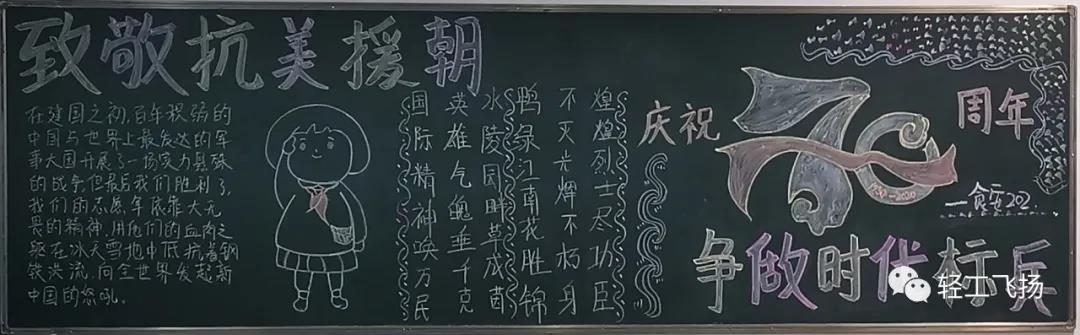 致敬抗美援朝
在建国之初,百年积弱的
中国与世界上最发达的军
事大国开展了一场实力悬殊
的战争,但最后我们胜利了,
我们的志愿军依靠大无
畏的精神,用他们的血肉之
躯在冰天雪地中低抗着钢
铁洪流,向全世界发起新
中国的怒吼。
煌煌烈士尽功臣
不灭光辉不朽身
鸭绿江南花胜锦
水陵园畔草成茵
英雄气魄垂千克
国际精神唤万民
庆祝
70
周年
1950-2020
202
争做时代标兵
轻工飞扬